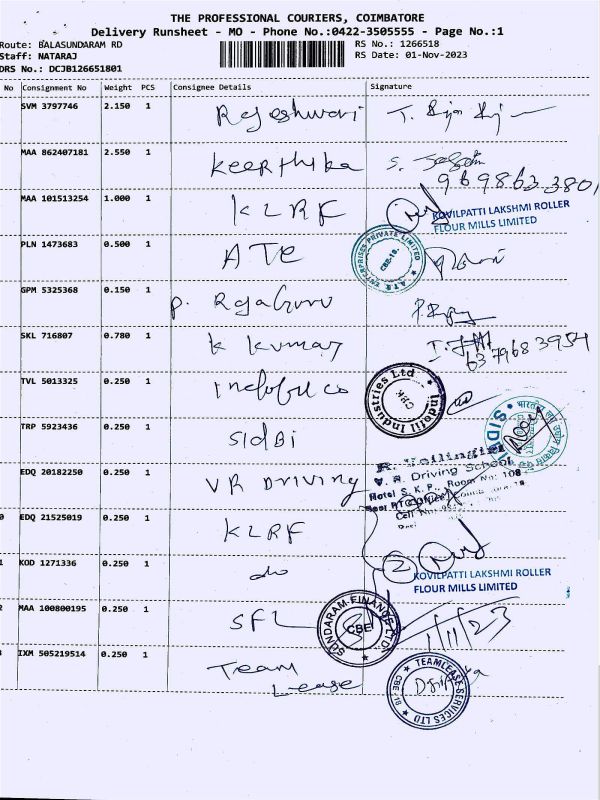 THE PROFESSIONAL COURIERS, COIMBATORE
Delivery Runsheet - MO - Phone No.:0422-3505555 - Page No.:1
Route: BALASUNDARAM RD
RS No.: 1266518
Staff: NATARAJ
RS Date: 01-Nov-2023
DRS No.: DCJB126651801
No Consignment No Weight PCS Consignee Details Signature
SVM 3797746 2.150 1 Rajeshwari
MAA 862407181 2.550 1 Keerthika
9698633801
MAA 101513254 1.000 1 KLRF
KOVILPATTI LAKSHMI ROLLER
FLOUR MILLS LIMITED
PLN 1473683 0.500 1 ATR
ATR ENTERPRISES PRIVATE LIMITED
CBE-18.
GPM 5325368 0.150 1 P. Rajaguru
SKL 716807 0.780 1 K Kumar
6379683954
TVL 5013325 0.250 1
Indofil Industries Ltd
CBE
TRP 5923436 0.250 1 SIDBI
SIDBI
EDQ 20182250 0.250 1 VR DRIVING
V. R. Driving School
Hotel S. K. P., Room No: 108
Cell No:
0 EDQ 21525019 0.250 1 KLRF
1 KOD 1271336 0.250 1 do
2
KOVILPATTI LAKSHMI ROLLER
FLOUR MILLS LIMITED
2 MAA 100800195 0.250 1 SFL
SUNDARAM FINANCE LTD
CBE
1/11/23
3 IXM 505219514 0.250 1 Team
Lease
TEAMLEASE SERVICES LTD
CBE